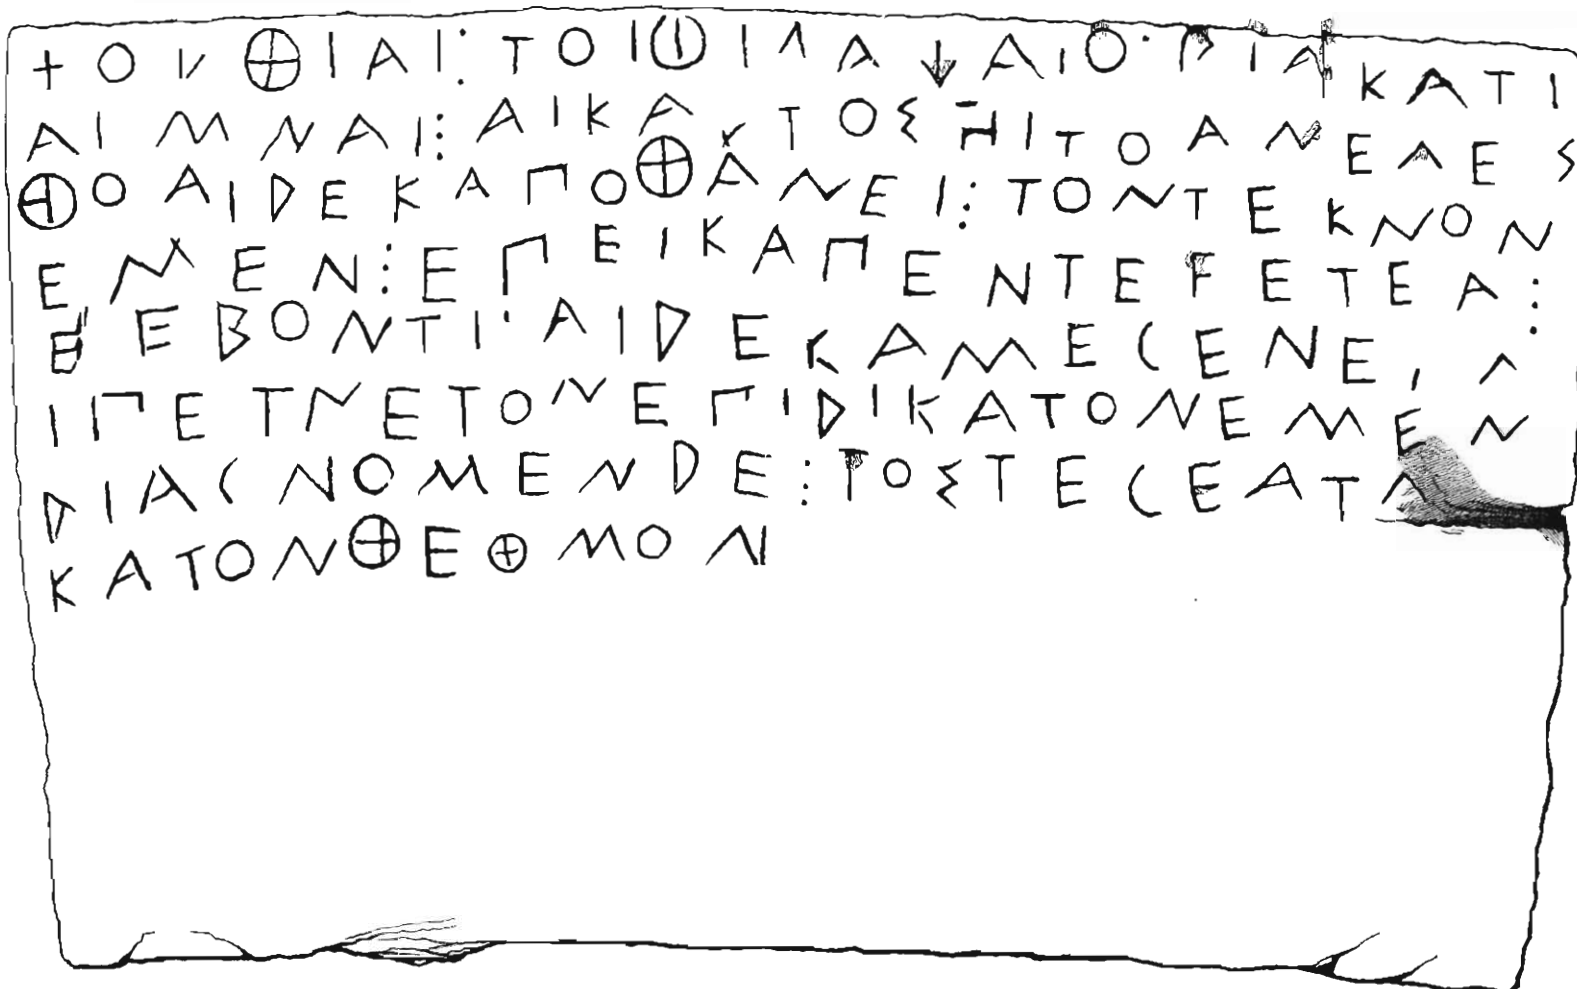 +ΟΥΘΙΑΙ⋮ΤΟΙΦΙΛΑ↓ΑΙΟ·ΔΙΑΚΑΤΙ
ΑΙΜΝΑΙ⋮ΑΙΚΑΥΤΟΣΗΙΤΟΑΝΕΛΕΣ
ΘΟΑΙΔΕΚΑΠΟΘΑΝΕΙ⋮ΤΟΝΤΕΚΝΟΝ
ΕΜΕΝ⋮ΕΠΕΙΚΑΠΕΝΤΕϜΕΤΕΑ⋮
ΗΕΒΟΝΤΙ·ΑΙΔΕΚΑΜΕΓΕΝΕΙΛ
ΙΠΕΤΝΕΤΟΝΕΠΙΔΙΚΑΤΟΝΕΜΕΝ
ΔΙΑΓΝΟΜΕΝΔΕ⋮ΤΟΣΤΕΓΕΑΤΑ
ΚΑΤΟΝΘΕΘΜΟΝ